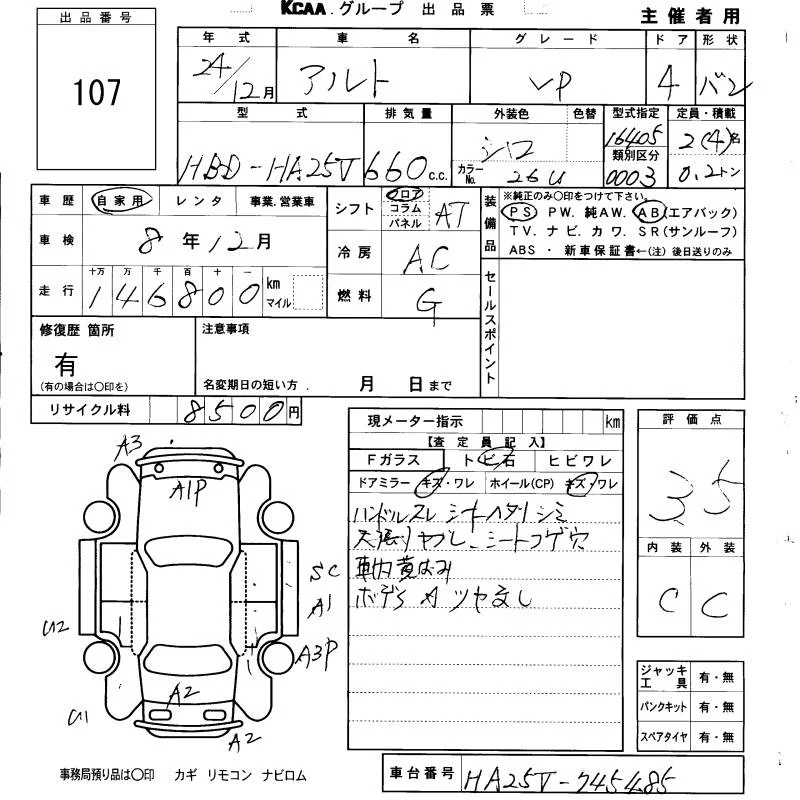 KCAA.グループ 出品票
主催者用
出品番号
107
年式 車名 グレード ドア 形状
24/12月 アルト VP 4 バン
型式 排気量 外装色 色替 型式指定 定員・積載
HBD-HA25V 660c.c. シロ カラーNo. 26U 16405 2(4)名
類別区分
0003 0.2トン
車歴 自家用 レンタ 事業.営業車
車検 8年12月
走行 十万 万 千 百 十 一
146800 km マイル
シフト フロア コラム パネル AT
冷房 AC
燃料 G
装備品
※純正のみ〇印をつけて下さい。
PS PW. 純AW. AB(エアバック)
TV. ナビ. カワ. SR(サンルーフ)
ABS ・ 新車保証書←(注) 後日送りのみ
セールスポイント
修復歴 箇所
有
(有の場合は〇印を)
注意事項
名変期日の短い方. 月 日まで
リサイクル料 8500円
現メーター指示 km
【査定員記入】
Fガラス トビ石 ヒビワレ
ドアミラー キズ・ワレ ホイール(CP) キズ・ワレ
ハンドルスレ シートヘタリ シミ
天張りヤブレ、シートコゲ穴
車内黄ばみ
ボデーS A ツヤ無し
評価点
35
内装 外装
C C
A3
A1P
SC
A1
U2
A3P
A2
U1
A2
ジャッキ工具 有・無
パンクキット 有・無
スペアタイヤ 有・無
事務局預り品は〇印 カギ リモコン ナビロム
車台番号 HA25V-745485